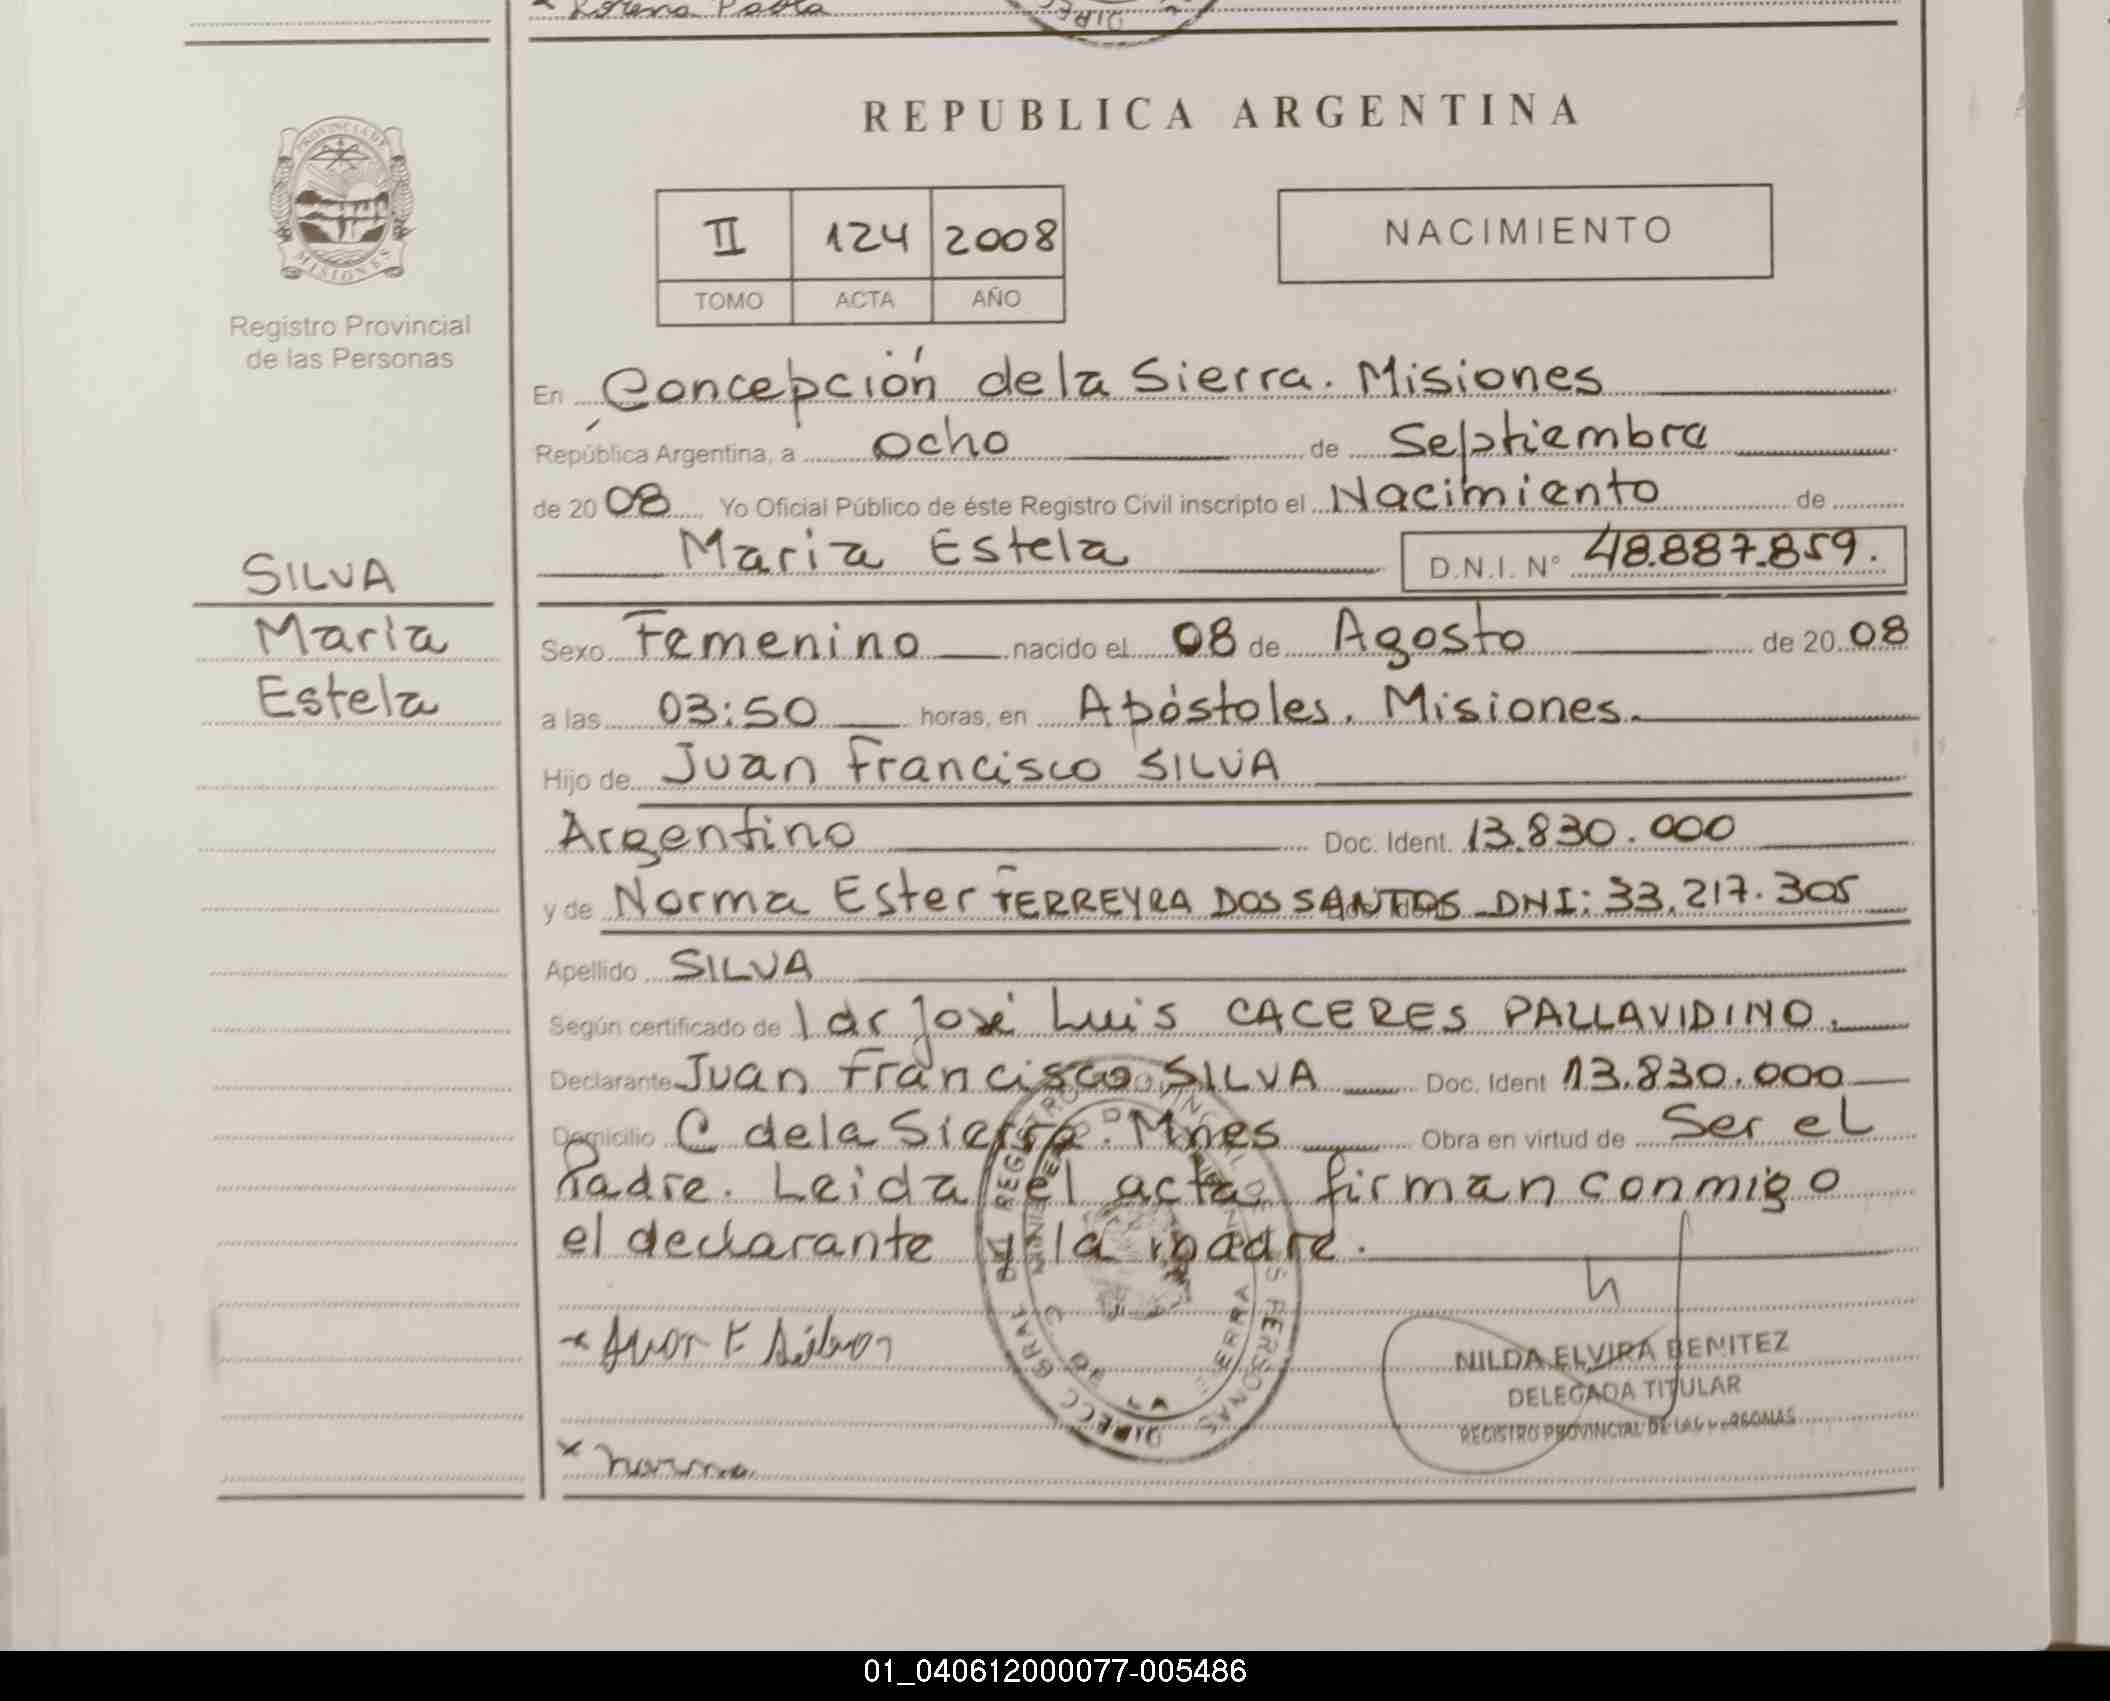 Lorena Paola
REPUBLICA ARGENTINA
PROVINCIA DE MISIONES
II 124 2008
TOMO ACTA AÑO
NACIMIENTO
Registro Provincial
de las Personas
SILVA
Maria
Estela
En Concepción de la Sierra. Misiones
República Argentina, a ocho de Septiembra
de 2008 Yo Oficial Público de éste Registro Civil inscripto el Nacimiento de
Maria Estela D.N.I. N° 48.887.859.
Sexo Femenino nacido el 08 de Agosto de 20 08
a las 03:50 horas, en Apóstoles. Misiones.
Hijo de Juan Francisco SILVA
Argentino Doc. Ident. 13.830.000
y de Norma Ester FERREYRA DOS SANTOS DNI: 33.217.305
Apellido SILVA
Según certificado de l dr José Luis CACERES PALLAVIDINO.
Declarante Juan Francisco SILVA Doc. Ident 13.830.000
Domicilio C de la Sierra. Mnes Obra en virtud de Ser el
Padre. Leida el acta, firman conmigo
el declarante y la madre.
x Juan F Silva
NILDA ELVIRA BENITEZ
DELEGADA TITULAR
REGISTRO PROVINCIAL DE LAS PERSONAS
x norma
01_040612000077-005486